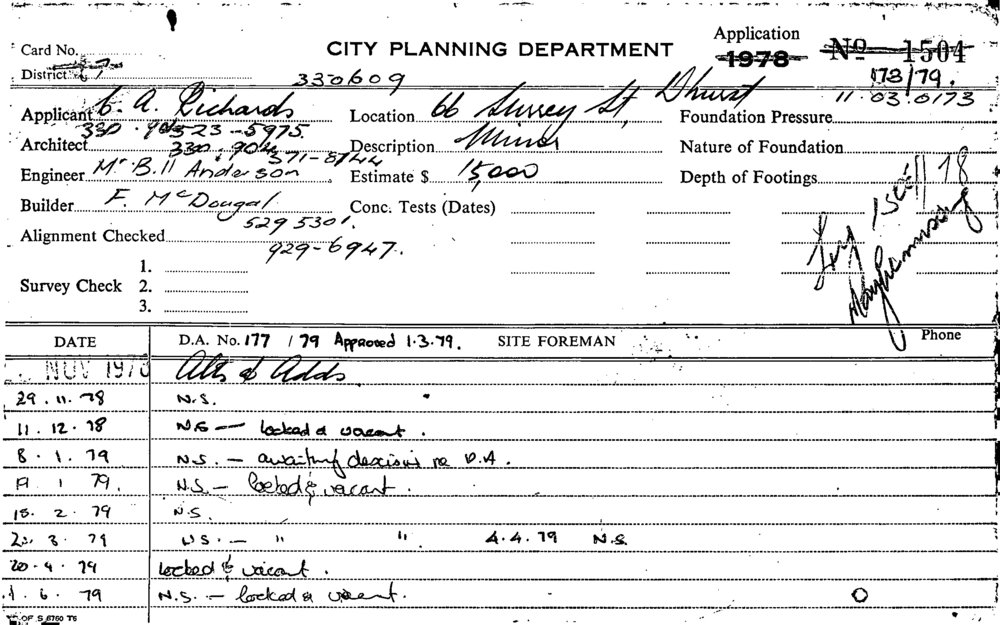 Application
Card No. CITY PLANNING DEPARTMENT 1978 No 1504
District 7 330609 173/79.
Applicant C. A. Richards Location 66 Surrey St, Dhurst 11.03.0173
Foundation Pressure
330 523-5975
Architect 330.904 Description Minor Nature of Foundation
371-8744
Engineer Mr Bill Anderson Estimate $ 15,000 Depth of Footings
Builder F. McDougal Conc. Tests (Dates)
529 5301
Alignment Checked
929-6947.
1.
Survey Check 2.
3.
DATE D.A. No. 177 / 79 Approved 1.3.79. SITE FOREMAN Phone
NOV 1978 Alts & Adds
29.11.78 N.S.
11.12.78 N.S — locked & vacant.
8.1.79 N.S. — awaiting decision re D.A.
19 1 79. N.S. — locked & vacant.
15.2.79 N.S.
3 79 N.S. — " " 4.4.79 N.S.
20.4.79 locked & vacant.
1.6.79 N.S. — locked & vacant.